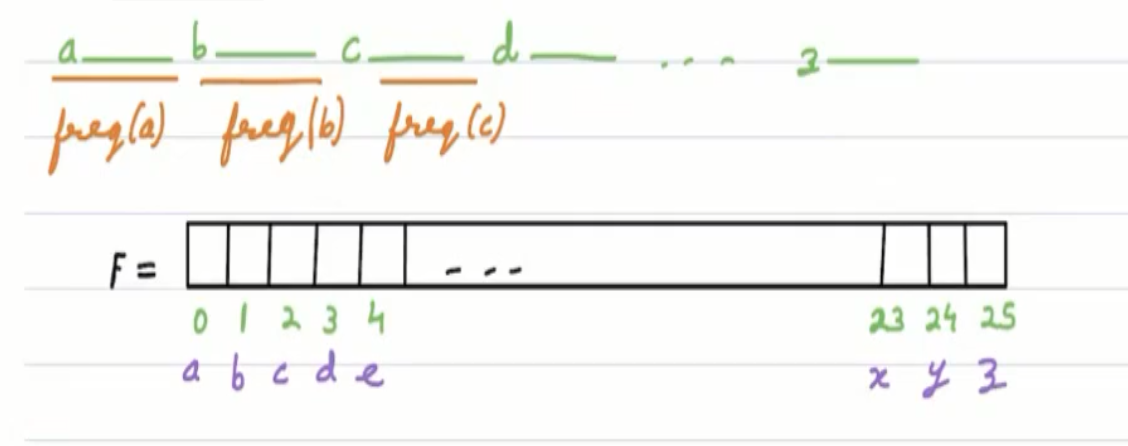 a____ b____ c____ d____ ... z____
freq(a) freq(b) freq(c)
F = ---
0 1 2 3 4 23 24 25
a b c d e x y z